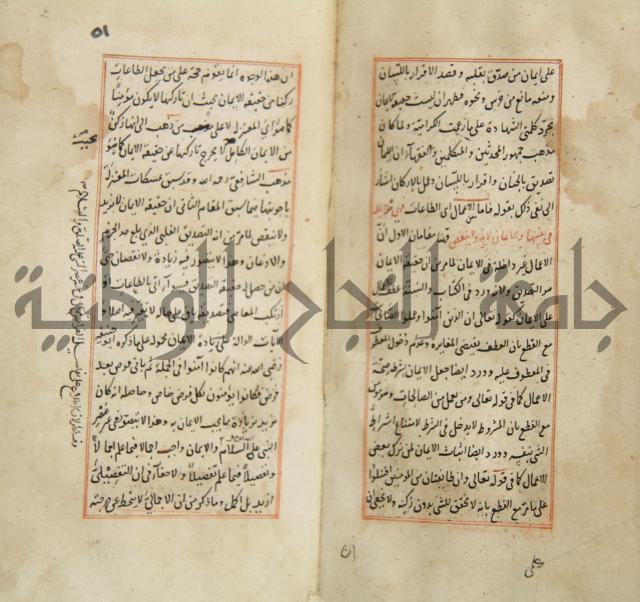 على ايمان من صدق بقلبه وقصد الاقرار باللسان
ومنعه مانع من خرس ونحوه فظهر ان ليست حقيقة الايمان
مجرد كلمتي الشهادة على ما زعمت الكرامية ولما كان
مذهب جمهور المحدثين والمتكلمين والفقهاء ان الايمان
تصديق بالجنان واقرار باللسان وعمل بالاركان اشار
الى نفي ذلك بقوله فاما الاعمال اى الطاعات فهي تتزايد
في نفسها والايمان لا يزيد ولا ينقص فهنا مقامان الاول ان
الاعمال غير داخلة في الايمان لما مر من ان حقيقة الايمان
هو التصديق ولانه ورد في الكتاب والسنة عطف الاعمال
على الايمان كقوله تعالى ان الذين آمنوا وعملوا الصالحات
مع القطع بان العطف يقتضي المغايرة وعدم دخول المعطوف
في المعطوف عليه وورد ايضا جعل الايمان شرط صحة
الاعمال كما في قوله تعالى ومن يعمل من الصالحات وهو مؤمن
مع القطع بان المشروط لا يدخل في الشرط لامتناع اشتراط
الشئ بنفسه وورد ايضا اثبات الايمان لمن ترك بعض
الاعمال كما في قوله تعالى وان طائفتان من المؤمنين اقتتلوا
على ما مر مع القطع بانه لا تحقق للشئ بدون ركنه ولا يخفى ان
على
٥١
ان هذه الوجوه انما يقوم حجة على من يجعل الطاعات
ركنا من حقيقة الايمان بحيث ان تاركها لا يكون مؤمنا
كما هو رأى المعتزلة لا على من ذهب الى انها ركن
من الايمان الكامل لا يخرج تاركها عن حقيقة الايمان كما هو
مذهب الشافعي رحمه الله وقد سبق تمسكات المعتزلة
باجوبتها فيما سبق المقام الثانى ان حقيقة الايمان لا يزيد
ولا ينقص لما مر من انه التصديق القلبي الذي بلغ حد الجزم
والاذعان وهذا لا يتصور فيه زيادة ولا نقصان حتى
ان من حصل له حقيقة التصديق فسواء اتى بالطاعات او
ارتكب المعاصي فتصديقه باق على حاله لا تغير فيه اصلا و
الآيات الدالة على زيادة الايمان محمولة على ما ذكره ابو حنيفة
رضى الله عنه انهم كانوا آمنوا في الجملة ثم ياتي فرض بعد
فرض فكانوا يؤمنون بكل فرض خاص وحاصله انه كان
يزيد بزيادة ما يجب الايمان به وهذا لا يتصور في غير عصر
النبي عليه السلام والايمان واجب اجمالا فيما علم اجمالا
وتفصيلا فيما علم تفصيلا ولا خفاء في ان التفصيلي
ازيد بل اكمل وما ذكر من ان الاجمالي لا ينحط عن درجته
جامعة النجاح الوطنية